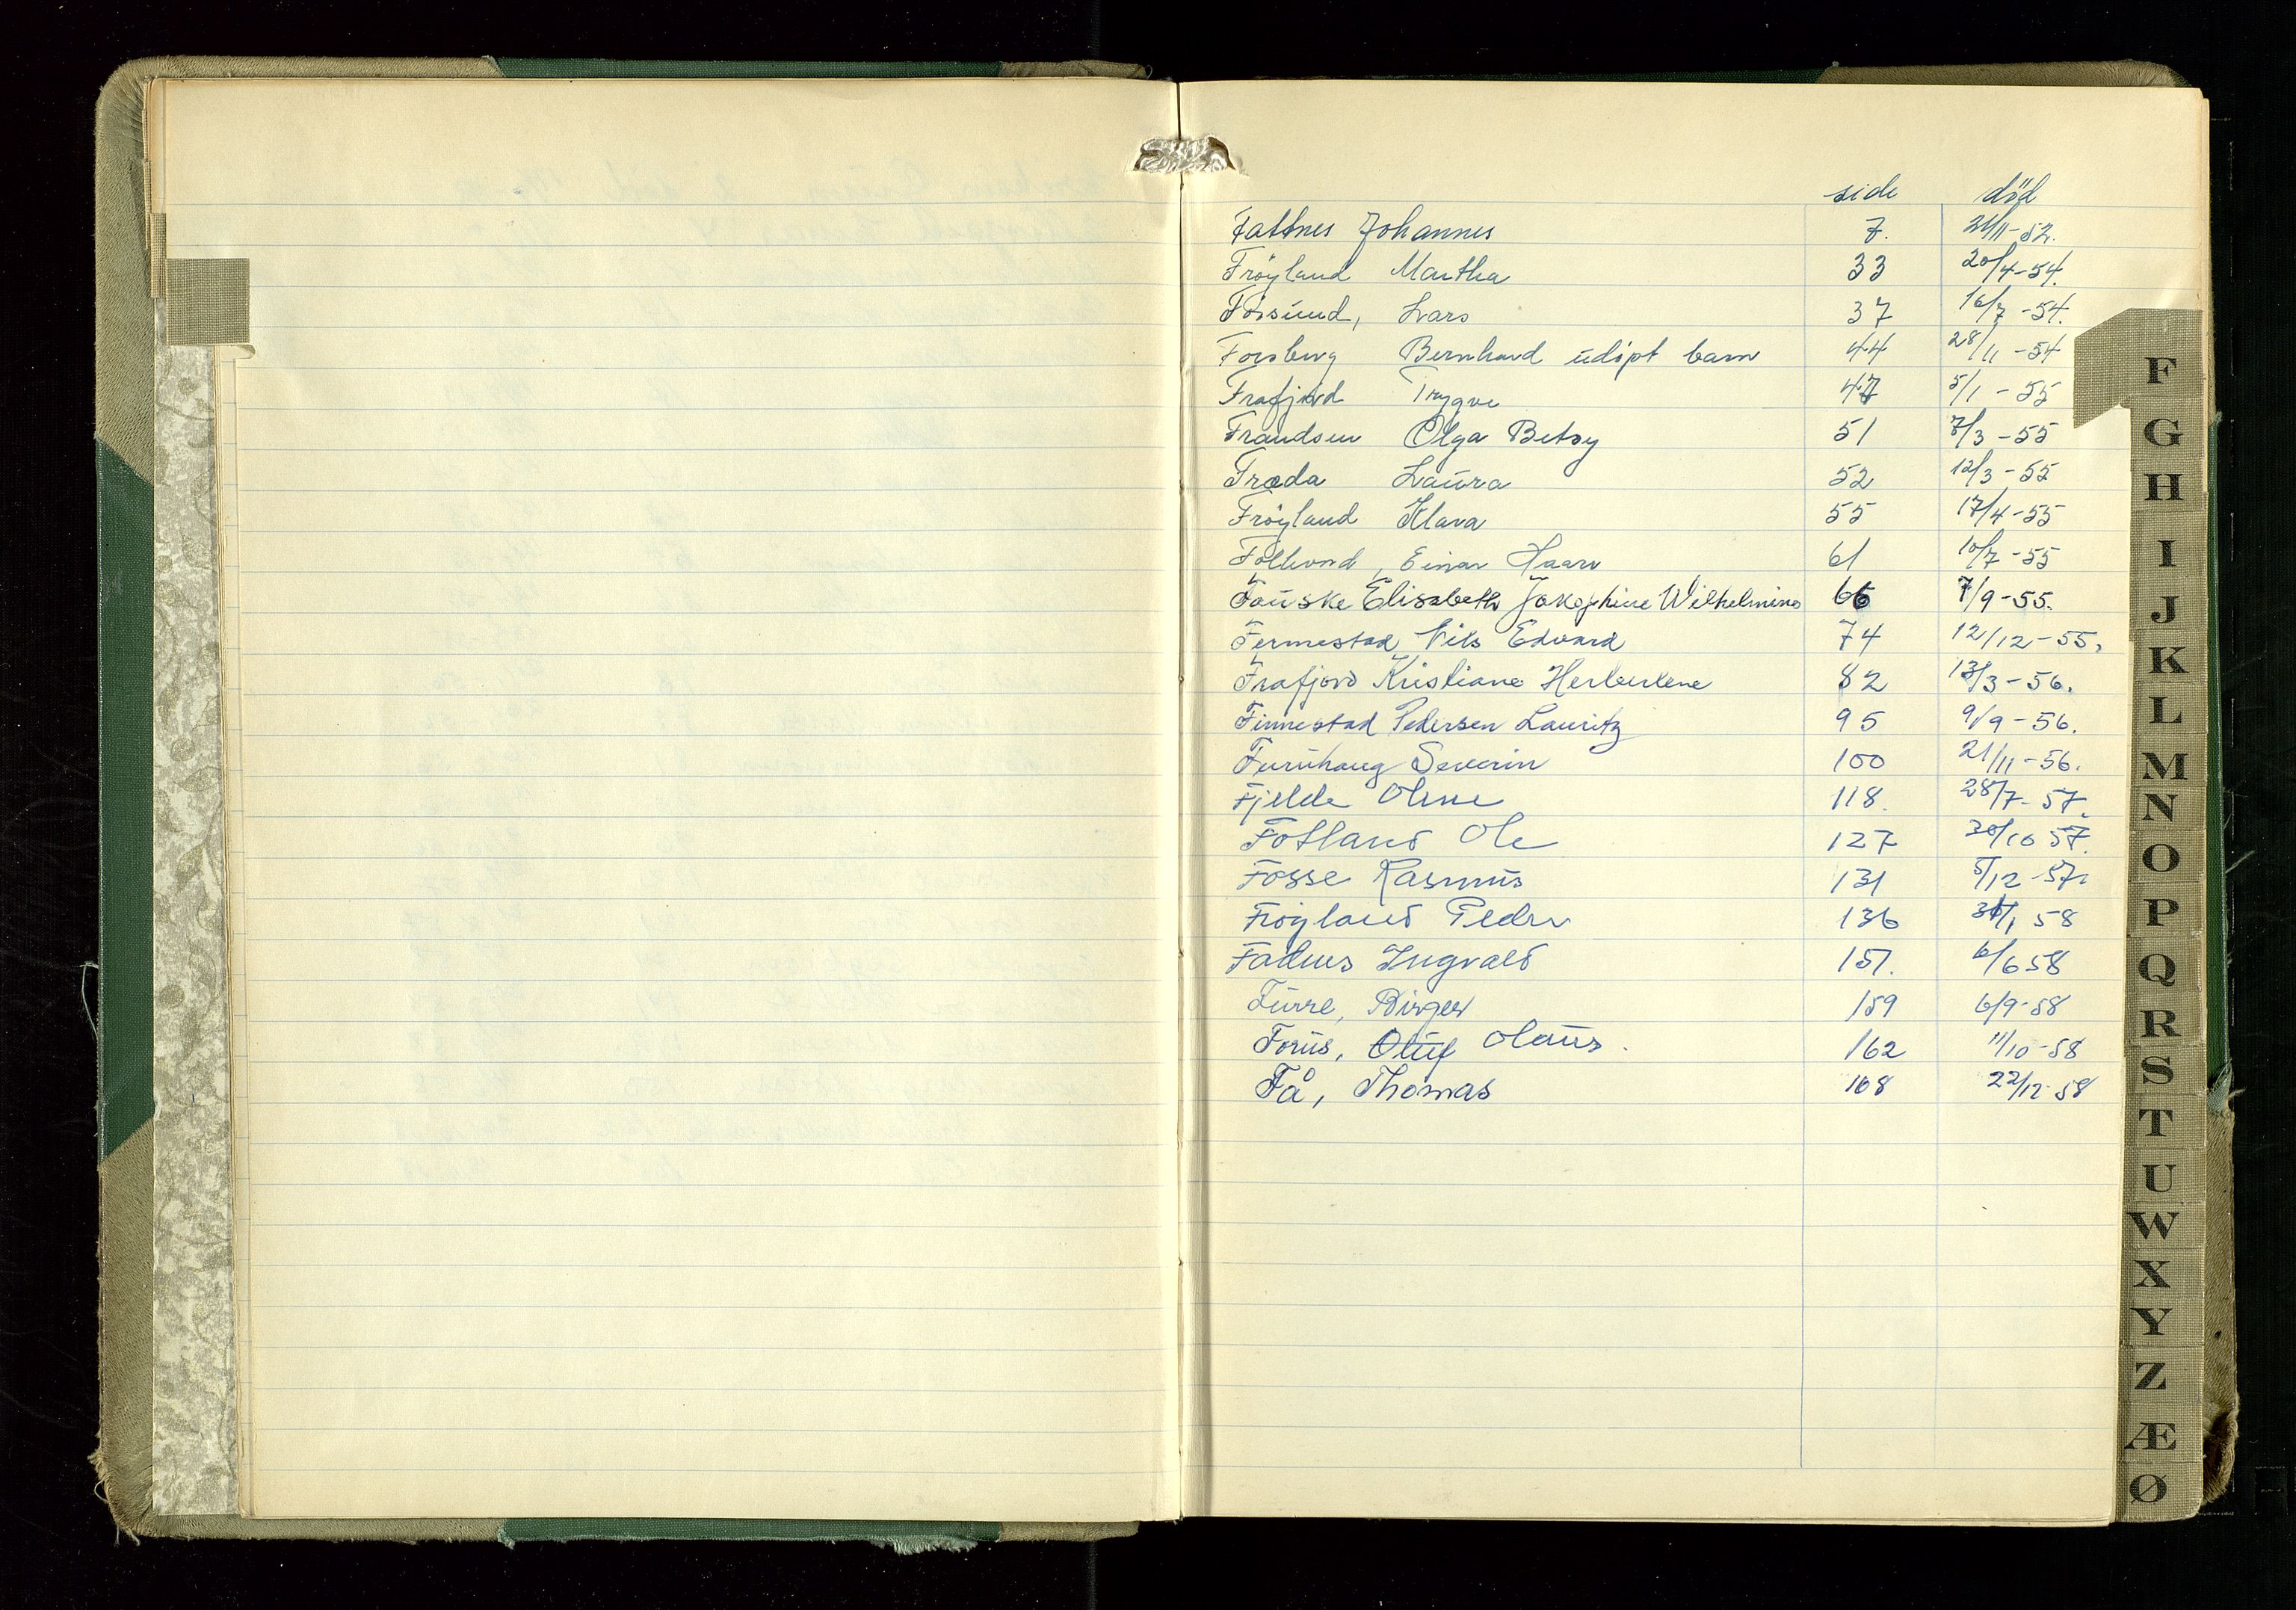 side död
Fattnes Johannes 7. 24/11-52.
Fröyland Martha 33 20/4-54.
Fosund, Lars 37 16/7-54.
Forsberg Bernhard udöpt barn 44 28/11-54
Frafjord Trygve 47 5/1-55
Frandsen Olga Betsy 51 7/3-55
Fræda Laura 52 12/3-55
Fröyland Klara 55 17/4-55
Follevord, Einar Haarr 61 10/7-55
Fauske Elisabeth Josephine Wilhelmine 66 7/9-55.
Fermestad Nils Edvard 74 12/12-55.
Frafjord Kristiane Herbertene 82 13/3-56.
Finnestad Pedersen Lauritz 95 9/9-56.
Furuhaug Severin 100 21/11-56.
Fjelde Oline 118. 28/7-57.
Fotland Ole 127 30/10 57.
Fosse Rasmus 131 5/12-57.
Fröyland Peder 136 31/1 58
Fadnes Ingvald 151. 6/6 58
Furre, Birger 159 6/9-58
Forus, Oluf Olaus. 162 11/10-58
Få, Thomas 168 22/12-58
F
G
H
I
J
K
L
M
N
O
P
Q
R
S
T
U
W
X
Y
Z
Æ
Ø